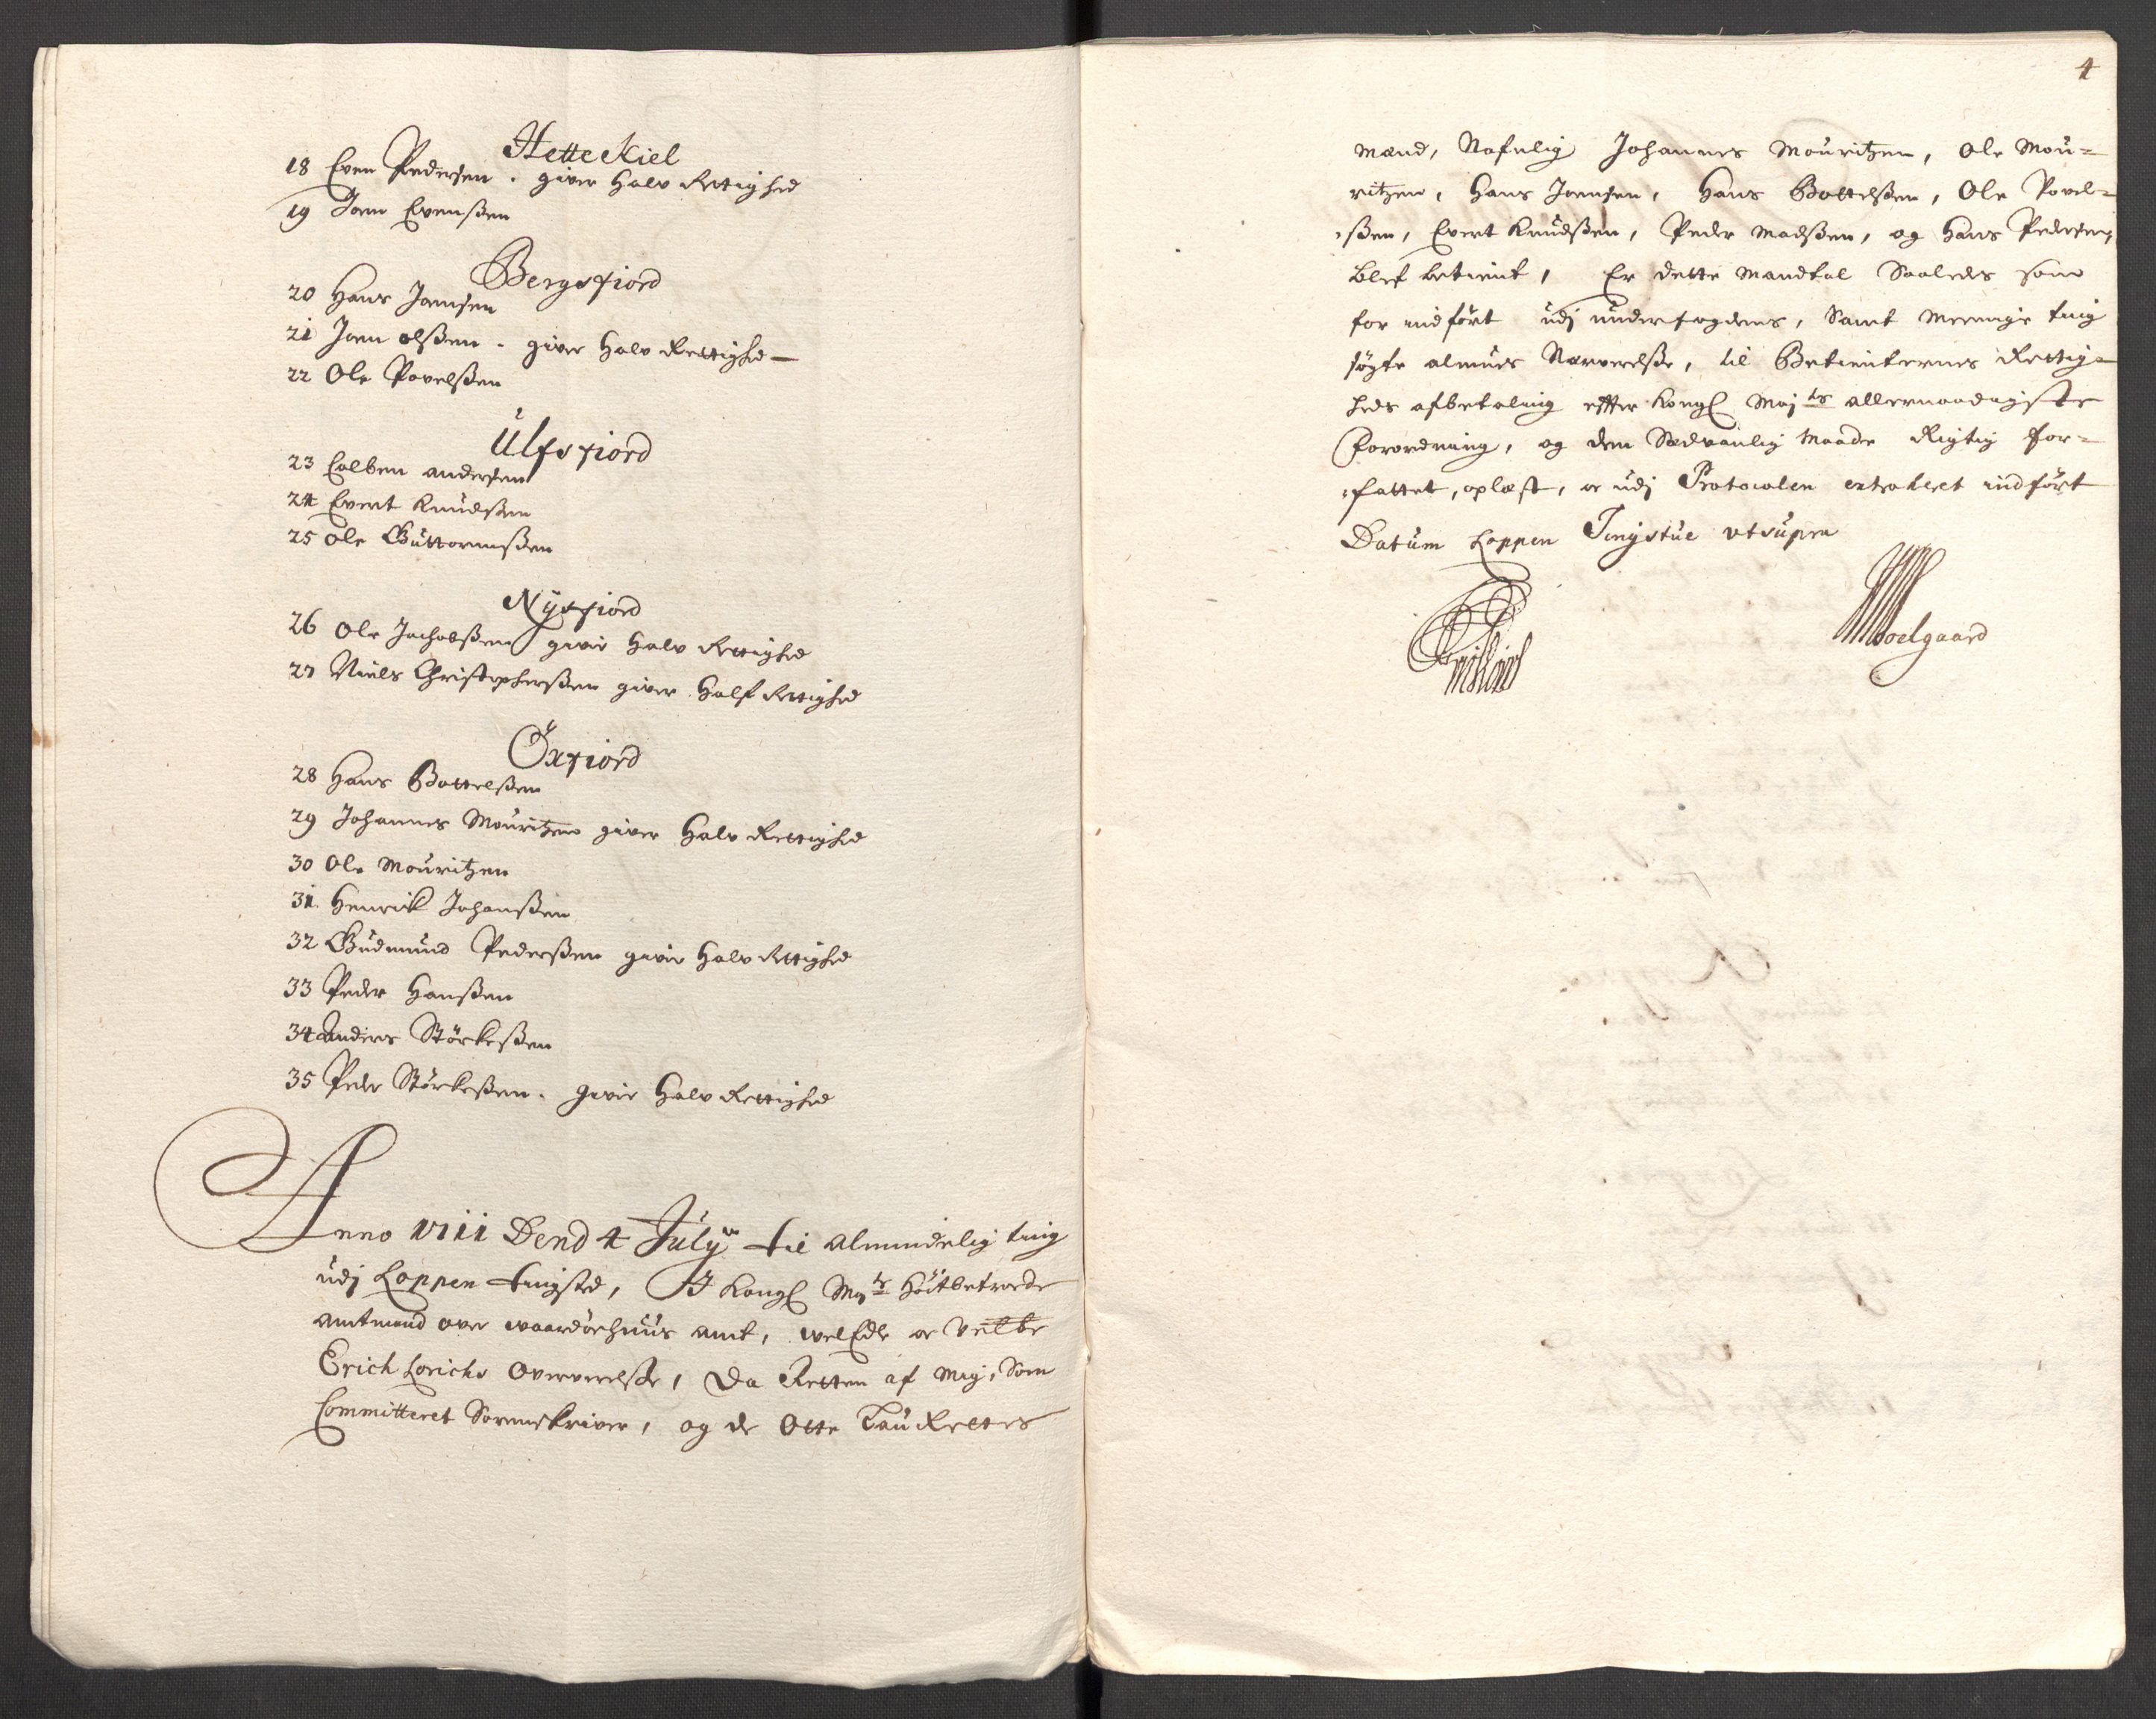 Hette Kiel
18 Even Pedersen. giver Halv Rettighed
19 Joen Evenßen
Bergsfiord
20 Hans Joensen
21 Joen olßen. giver Halv Rettighed
22 Ole Povelßen
Ulfsfiord
23 Colben andersen
24 Evert Knudsen
25 Ole Guttormßen
Nysfiord
26 Ole Jachobßen giver Halv Rettighed
27 Niels Christopherßen giver Half Rettighed
Öxfiord
28 Hans Bottelßen
29 Johannes Mouritzen giver Halv Rettighed
30 Ole Mouritzen
31. Henrick Johanßen
32 Gudmund Pederßen giver Halv Rettighed
33 Peder Hanßen
34 Anders Störkeßen
35 Peder Störkeßen. giver Halv Rettighed
Anno 1711 Dend 4 July til almindelig ting
udj Loppen tingsted, J Kongl Mayts Höitbetroede
amtmand over waardöehuus amt, welEdle oc
Erich Lorichs Oververelße, Da Retten af mig, Som
Committeret Sorenskriver, og de otte Lau Rettes
4
mænd, Nafnlig Johannes Mouritzen, Ole Mou-
ritzen, Hans Joensen, Hans Bottelßen, Ole Povel-
ßen, Evert Knudßen, Peder Madßen, og Hans Pedersen,
blef betient, Er dette Mandtal Saaledes som
for indfört udj underfogdens, Samt Meenige ting
søgte almues Nærverelße, til Betienternes Rettig-
heds afbetaling effter Kongl Mayts allernaadigste
Forordning, og dend Sædvanlig Maade Rigtig for-
fattet, oplæst, oc udj Protocolen extraheret indfört
Datum Loppen Tingstue ut supra
Moelgaard